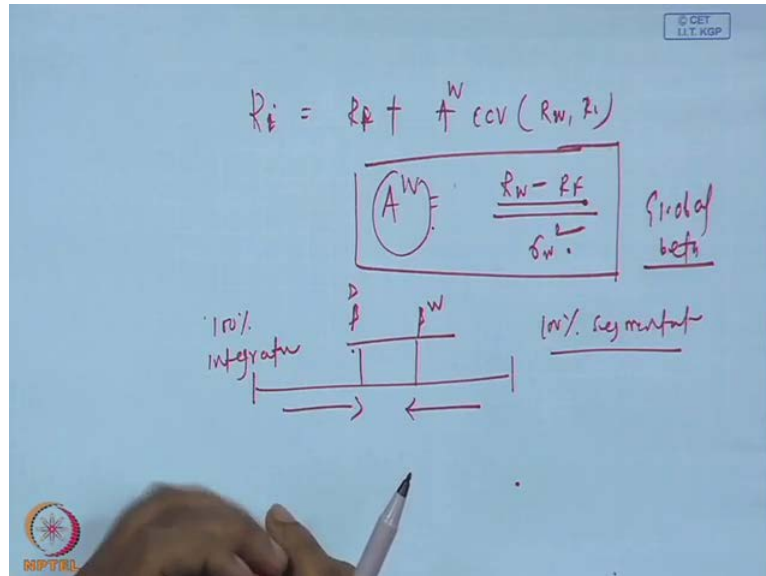 © CET
I.I.T. KGP
Ri = RF + A^W cov ( RW, Ri )
A^W = RW - RF
σw².
Global
beta
100%
integration
β^D β^W
100% segmentat
NPTEL